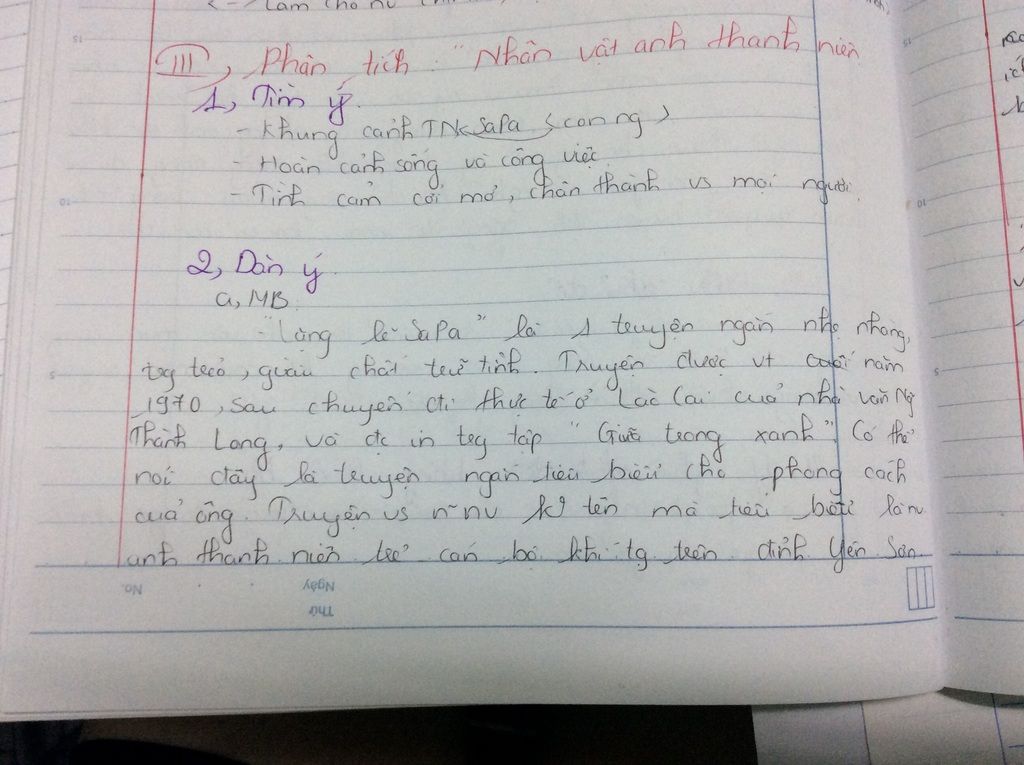 Làm cho nv
III, Phân tích "Nhân vật anh thanh niên
1, Tìm ý
- Khung cảnh TN SaPa (con ng)
- Hoàn cảnh sống và công việc
- Tình cảm cởi mở, chân thành vs mọi người
2, Dàn ý
a, MB
- "Lặng lẽ SaPa" là 1 truyện ngắn nhẹ nhàng,
trẻo, giàu chất trữ tình. Truyện được vt cuối năm
1970, sau chuyến đi thực tế ở Lào Cai của nhà văn Ng
Thành Long, và đc in trg tập "Giữa trong xanh" Có thể
nói đây là truyện ngắn tiêu biểu cho phong cách
của ông. Truyện vs n~ nv k tên mà tiêu biểu là nv
anh thanh niên trẻ cán bộ khí tg trên đỉnh Yên Sơn
No.
Thứ
Ngày
15
10
5
15
10
5